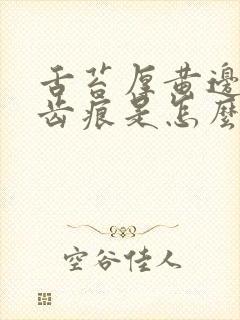 舌苔厚黄邊
齿痕是怎麼
空谷佳人